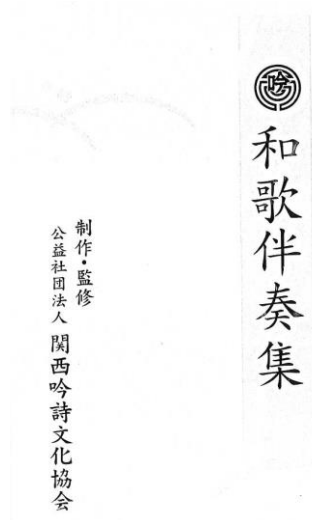 吟
和歌伴奏集
制作・監修
公益社団法人 関西吟詩文化協会